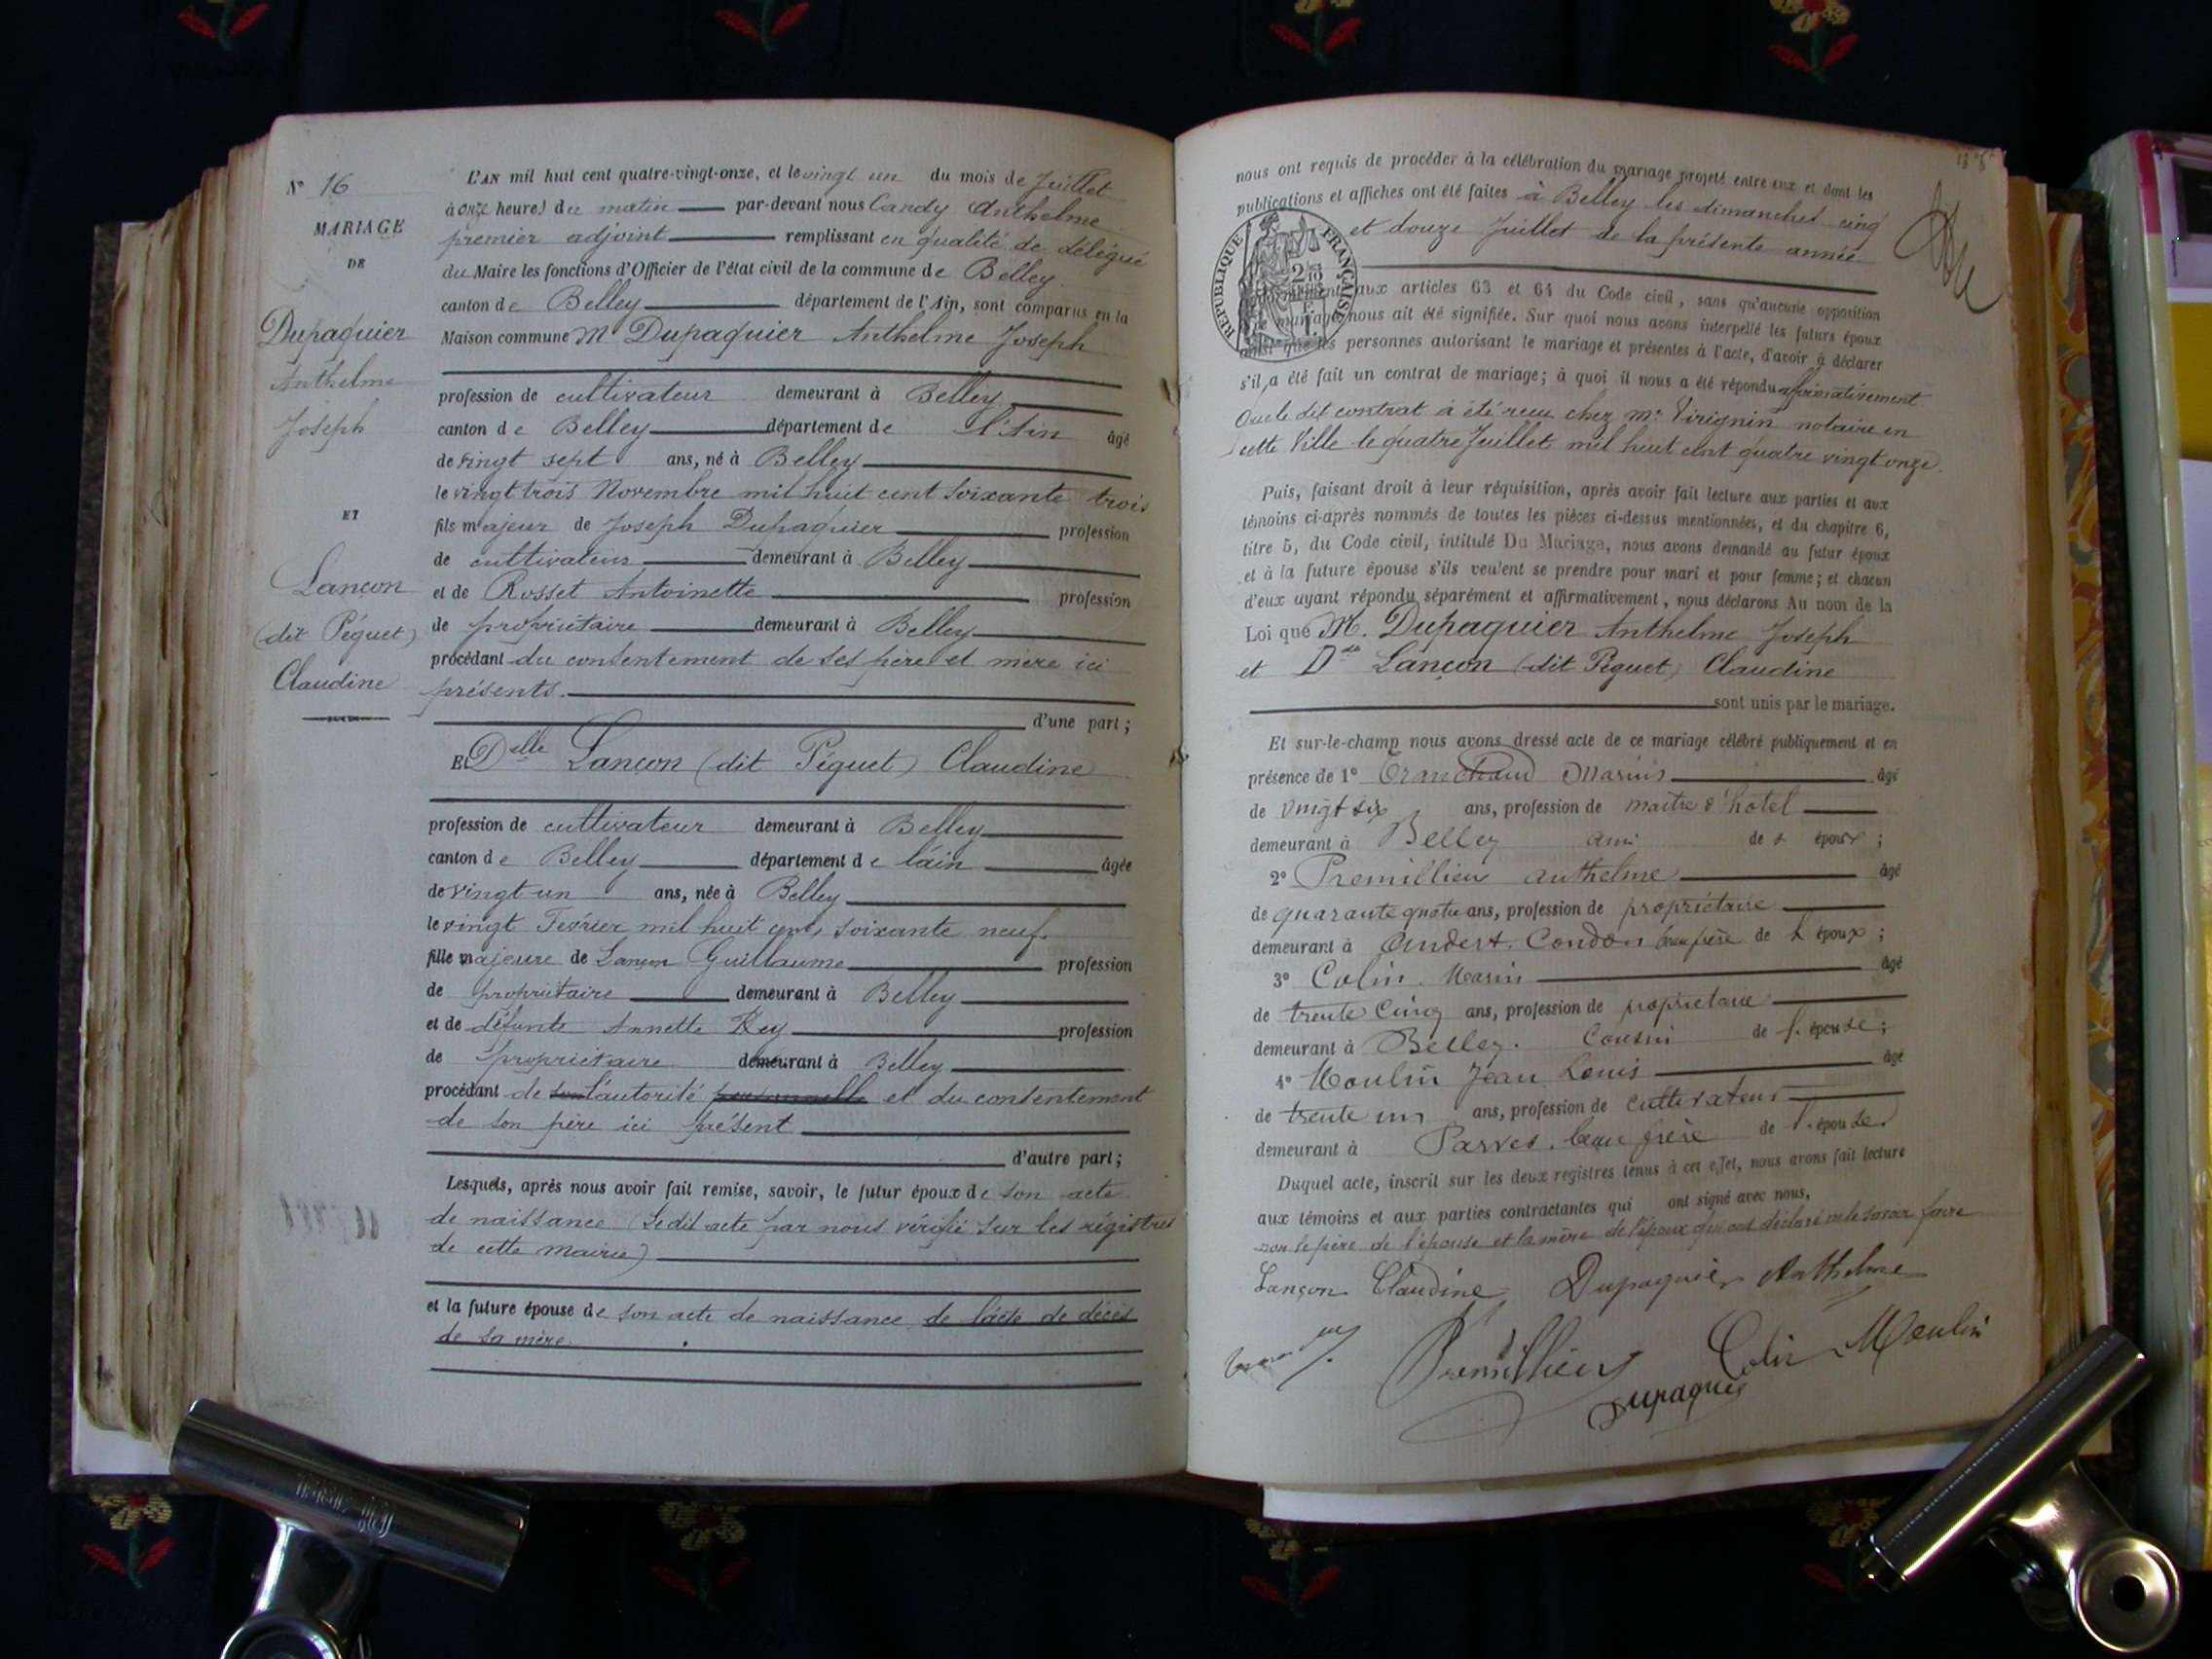 N° 16
MARIAGE
DE
Dupaquier
Anthelme
Joseph
ET
Lançon
(dit Péguet)
Claudine
L'AN mil huit cent quatre-vingt-onze, et le vingt un du mois de Juillet
à onze heures du matin par-devant nous Candy Anthelme
premier adjoint remplissant en qualité de délégué
du Maire les fonctions d'Officier de l'état civil de la commune de Belley
canton de Belley département de l'Ain, sont comparus en la
Maison commune Mr Dupaquier Anthelme Joseph
profession de cultivateur demeurant à Belley
canton de Belley département de l'Ain âgé
de vingt sept ans, né à Belley
le vingt trois Novembre mil huit cent soixante trois
fils majeur de Joseph Dupaquier profession
de cultivateur demeurant à Belley
et de Rosset Antoinette profession
de propriétaire demeurant à Belley
procédant du consentement de ses père et mère ici
présents.
d'une part;
Et Delle Lançon (dit Péguet) Claudine
profession de cultivateur demeurant à Belley
canton de Belley département de l'ain âgée
de vingt un ans, née à Belley
le vingt Février mil huit cent soixante neuf
fille majeure de Lançon Guillaume profession
de propriétaire demeurant à Belley
et de défunte Annette Rey profession
de propriétaire demeurant à Belley
procédant de son l'autorité personnelle et du consentement
de son père ici présent
d'autre part;
Lesquels, après nous avoir fait remise, savoir, le futur époux de son acte
de naissance (Le dit acte par nous vérifié sur les régistres
de cette mairie)
et la future épouse de son acte de naissance de l'acte de décès
de sa mère.
nous ont requis de procéder à la célébration du mariage projeté entre eux et dont les
publications et affiches ont été faites à Belley les dimanches cinq
et douze Juillet de la présente année
RÉPUBLIQUE FRANÇAISE
aux articles 63 et 64 du Code civil, sans qu'aucune opposition
mariage nous ait été signifiée. Sur quoi nous avons interpellé les futurs époux
ainsi que les personnes autorisant le mariage et présentes à l'acte, d'avoir à déclarer
s'il a été fait un contrat de mariage; à quoi il nous a été répondu affirmativement
Que le dit contrat à été reçu chez Mr Virignin notaire en
cette Ville le quatre Juillet mil huit cent quatre vingt onze.
Puis, faisant droit à leur réquisition, après avoir fait lecture aux parties et aux
témoins ci-après nommés de toutes les pièces ci-dessus mentionnées, et du chapitre 6,
titre 5, du Code civil, intitulé Du Mariage, nous avons demandé au futur époux
et à la future épouse s'ils veulent se prendre pour mari et pour femme; et chacun
d'eux ayant répondu séparément et affirmativement, nous déclarons Au nom de la
Loi que M. Dupaquier Anthelme Joseph
et Dlle Lançon (dit Péguet) Claudine
sont unis par le mariage.
Et sur-le-champ nous avons dressé acte de ce mariage célébré publiquement et en
présence de 1° Tranchand Marius âgé
de vingt six ans, profession de maître d'hotel
demeurant à Belley ami de l' époux;
2° Premillieu anthelme âgé
de quarante quatre ans, profession de propriétaire
demeurant à Andert-Condon beau frère de l' époux;
3° Colin Marin âgé
de trente cinq ans, profession de propriétaire
demeurant à Belley. Cousin de l'épouse;
4° Moulin Jean Louis âgé
de trente un ans, profession de cultivateur
demeurant à Parves. beau frère de l'épouse.
Duquel acte, inscrit sur les deux registres tenus à cet effet, nous avons fait lecture
aux témoins et aux parties contractantes qui ont signé avec nous,
non le père de l'épouse et la mère de l'époux qui ont déclaré ne le savoir faire
Lançon Claudine Dupaquier Anthelme
Premillieu Colin Moulin
Dupaquier